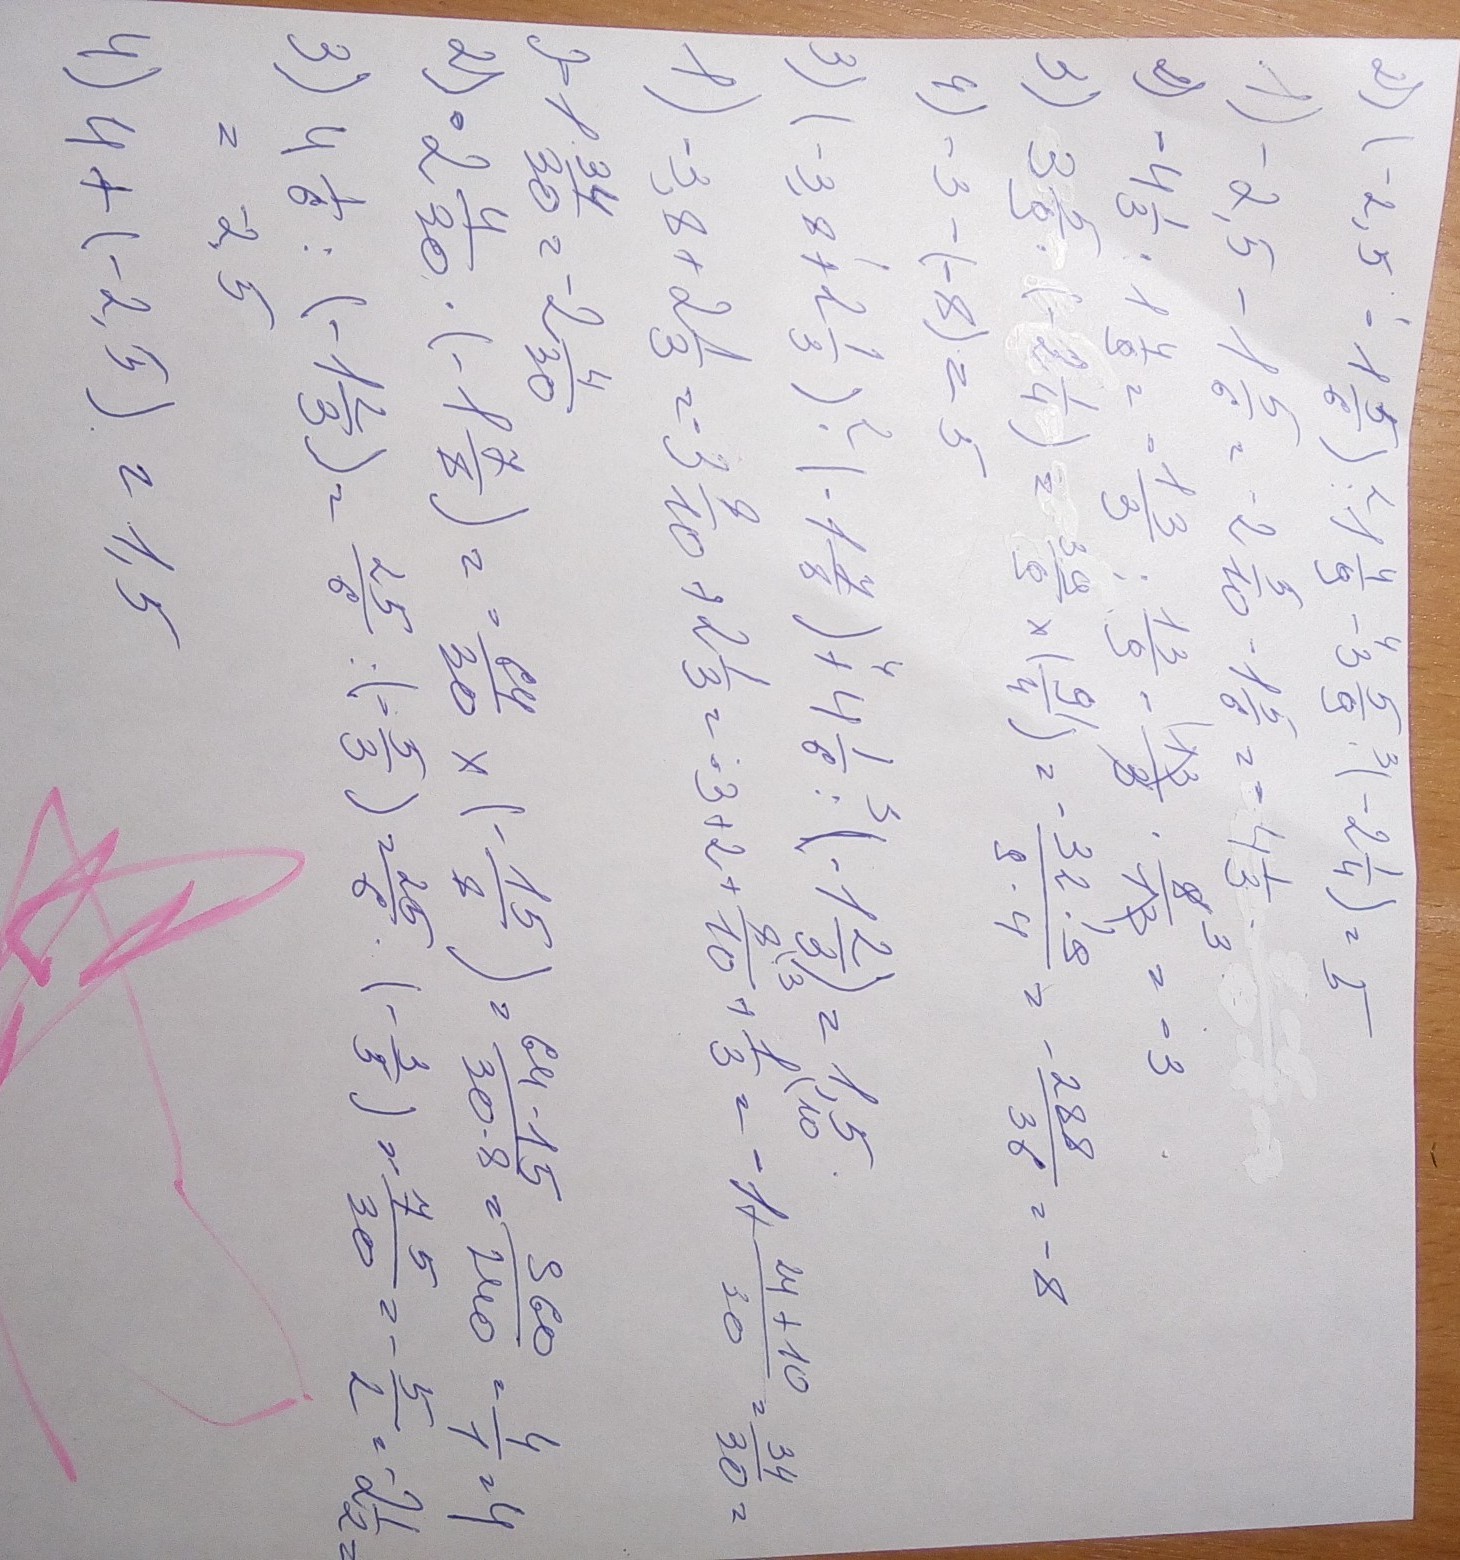 2) (-2,5 - 1 5/6) : 1 4/9 - 3 5/9 · (-2 1/4) = 5
1) -2,5 - 1 5/6 = -2 5/10 - 1 5/6 = -4 1/3
2) -4 1/3 : 1 4/9 = -13/3 : 13/9 = -13/3 · 9/13 = -3
3) 3 5/9 · (-2 1/4) = 32/9 × (9/4) = -32·9/9·4 = -288/36 = -8
4) -3 - (-8) = 5
3) (-3,8 + 2 1/3) · (-1 7/8) + 4 1/6 : (-1 2/3) = 1,5
1) -3,8 + 2 1/3 = -3 8/10 + 2 1/3 = -3 + 2 + 8/10 + 1/3 = -1 + 24+10/30 = 34/30 =
= -1 34/30 = -2 4/30
2) -2 4/30 · (-1 7/8) = -64/30 × (-15/8) = 64·15/30·8 = 960/240 = 4/1 = 4
3) 4 1/6 : (-1 2/3) = 25/6 : (-5/3) = 25/6 · (-3/5) = -75/30 = -5/2 = -2 1/2 =
= -2,5
4) 4 + (-2,5) = 1,5